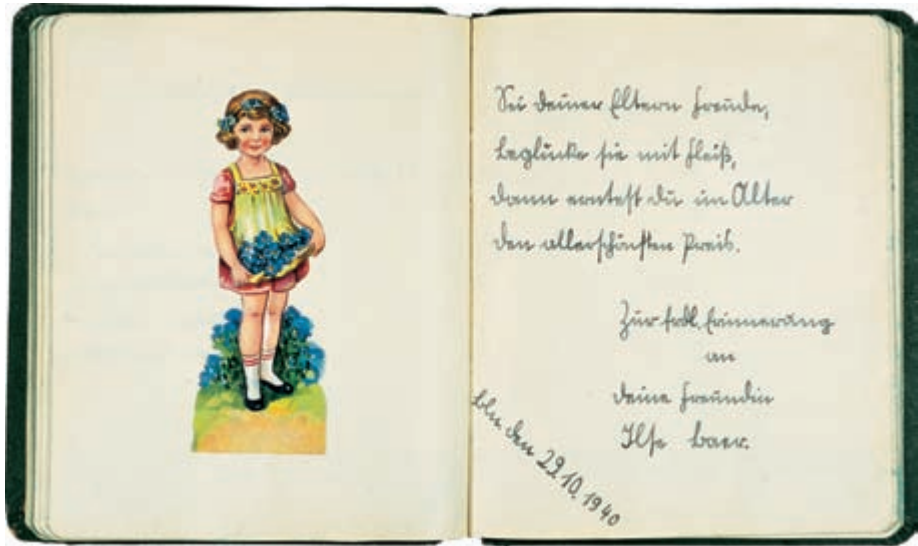 Sei deiner Eltern Freude,
beglücke sie mit Fleiß,
dann erntest du im Alter
den allerschönsten Preis.
Zur frdl. Erinnerung
an
deine Freundin
Ilse Baer.
Bln. den 29.10.1940